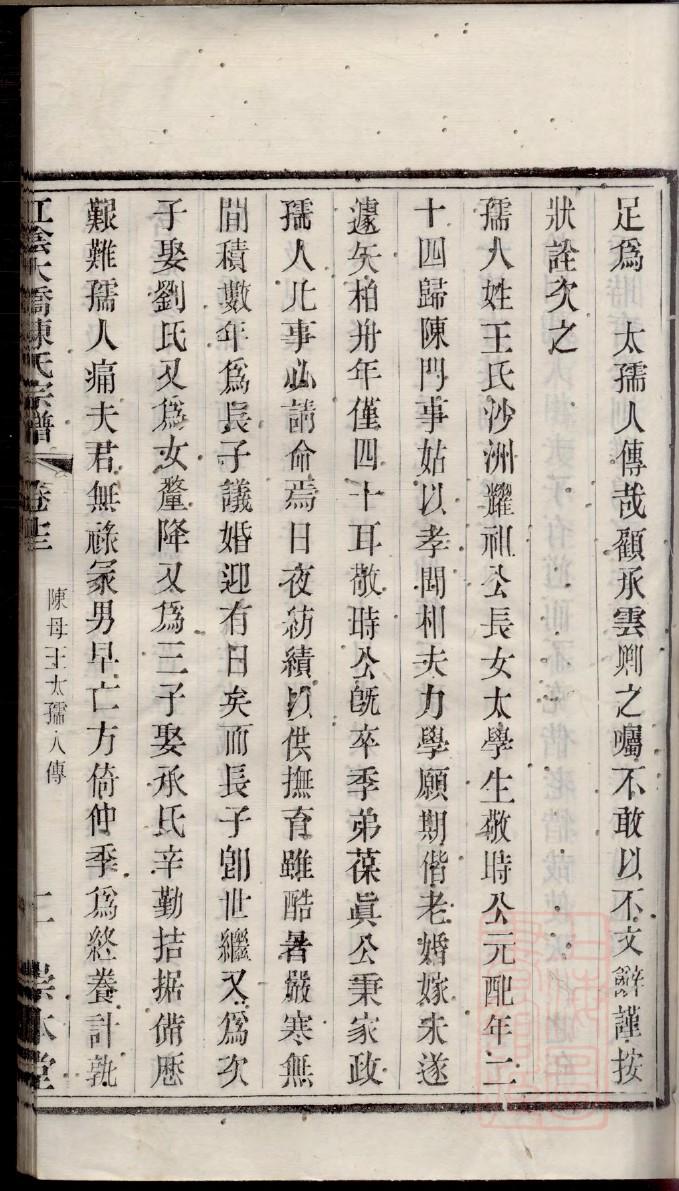 足爲　太孺人傳哉顧承雲卿之囑不敢以不文辭謹按
狀詮次之
孺人姓王氏沙洲耀祖公長女太學生敬時公元配年二
十四歸陳門事姑以孝聞相夫力學願期偕老婚嫁未遂
遽矢柏舟年僅四十耳敬時公旣卒季弟葆眞公秉家政
孺人凡事必請命焉日夜紡績以供撫育雖酷暑嚴寒無
間積數年爲長子議婚迎有日矣而長子卽世繼又爲次
子娶劉氏又爲女釐降又爲三子娶承氏辛勤拮据備歷
艱難孺人痛夫君無祿冢男早亡方倚仲季爲終養計孰
江陰大橋陳氏宗譜 卷十三 陳母王太孺人傳 崇本堂